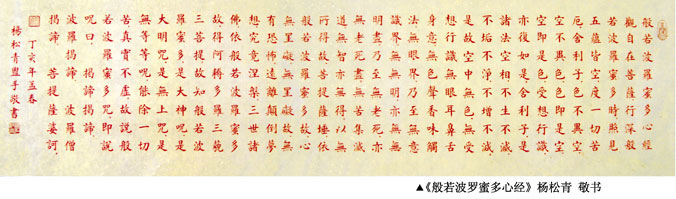 般若波羅蜜多心經
觀自在菩薩行深般
若波羅蜜多時照見
五蘊皆空度一切苦
厄舍利子色不異空
空不異色色即是空
空即是色受想行識
亦復如是舍利子是
諸法空相不生不滅
不垢不淨不增不減
是故空中無色無受
想行識無眼耳鼻舌
身意無色聲香味觸
法無眼界乃至無意
識界無無明亦無無
明盡乃至無老死亦
無老死盡無苦集滅
道無智亦無得以無
所得故菩提薩埵依
般若波羅蜜多故心
無罣礙無罣礙故無
有恐怖遠離顛倒夢
想究竟涅槃三世諸
佛依般若波羅蜜多
故得阿耨多羅三藐
三菩提故知般若波
羅蜜多是大神呪是
大明呪是無上呪是
無等等呪能除一切
苦真實不虛故說般
若波羅蜜多呪即說
呪曰 揭諦揭諦
波羅揭諦 波羅僧
揭諦 菩提薩婆訶
丁亥年孟春
楊松青盥手敬書
▲《般若波罗蜜多心经》杨松青 敬书